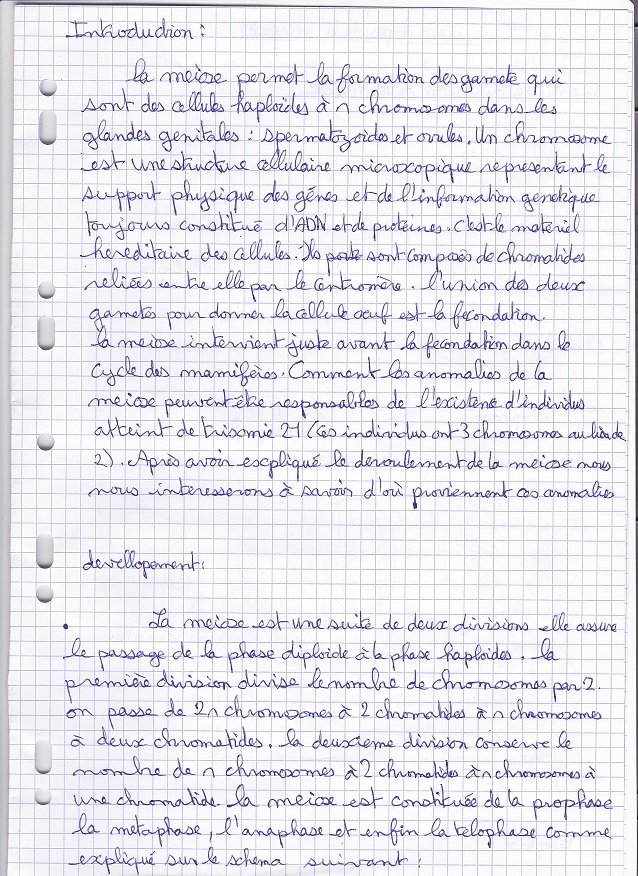 Introduction :
la meiose permet la formation des gamete qui
sont des cellules haploides à n chromosomes dans les
glandes genitales : spermatozoides et ovules. Un chromosome
est une structure cellulaire microscopique representant le
support physique des génes et de l'information genetique
toujours constitué d'ADN et de proteines. c'est le materiel
hereditaire des cellules. Ils porte sont composés de chromatides
reliées entre elle par le centromère. l'union des deux
gametes pour donner la cellule oeuf est la fecondation.
la meiose intervient juste avant la fecondation dans le
cycle des mamifères. Comment les anomalies de la
meiose peuvent être responsables de l'existene d'individus
atteint de trisomie 21 (ces individus ont 3 chromosomes au lieu de
2). Après avoir escpliqué le deroulement de la meiose nous
nous interesserons à savoir d'où proviennent ces anomalies
devellopement :
. La meiose est une suite de deux divisions elle assure
le passage de la phase diploide à la phase haploides. la
première division divise le nombre de chromosomes par 2.
on passe de 2n chromosomes à 2 chromatides à n chromosomes
à deux chromatides. la deuxieme division conserve le
nombre de n chromosomes à 2 chromatides à n chromosomes à
une chromatide la meiose est constituée de la prophase
la metaphase, l'anaphase et enfin la telophase comme
expliqué sur le schema suivant :